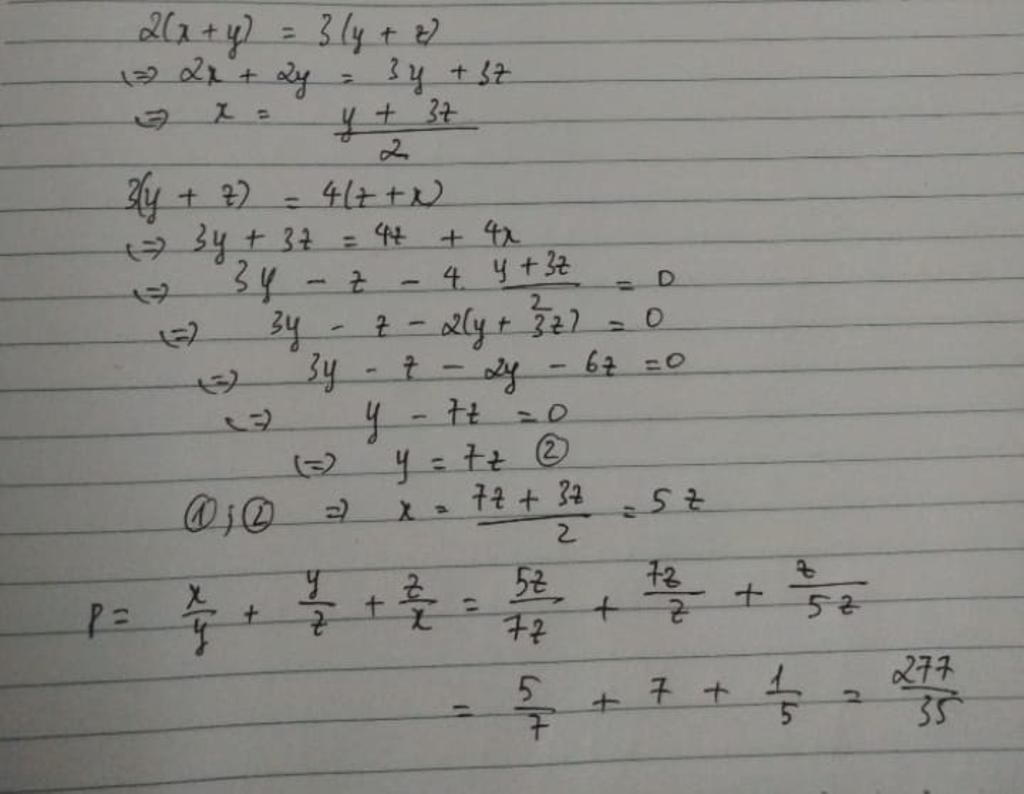 2(x + y) = 3(y + z)
(=) 2x + 2y = 3y + 3z
(=) x = (y + 3z)/2
3(y + z) = 4(z + x)
(=) 3y + 3z = 4z + 4x
(=) 3y - z - 4. (y + 3z)/2 = 0
(=) 3y - z - 2(y + 3z) = 0
(=) 3y - z - 2y - 6z = 0
(=) y - 7z = 0
(=) y = 7z ②
①; ② => x = (7z + 3z)/2 = 5z
P = x/y + y/z + z/x = 5z/7z + 7z/z + z/5z
= 5/7 + 7 + 1/5 = 277/35